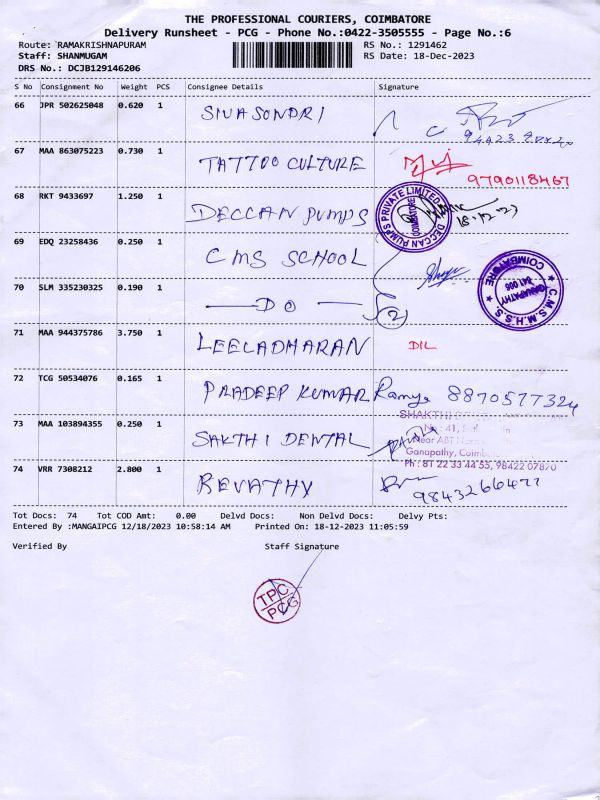 THE PROFESSIONAL COURIERS, COIMBATORE
Delivery Runsheet - PCG - Phone No.:0422-3505555 - Page No.:6
Route: `RAMAKRISHNAPURAM RS No.: 1291462
Staff: SHANMUGAM RS Date: 18-Dec-2023
DRS No.: DCJB129146206
S No Consignment No Weight PCS Consignee Details Signature
66 JPR 502625048 0.620 1 SIVASONDRI
67 MAA 863075223 0.730 1 TATTOO CULTURE 9790118467
68 RKT 9433697 1.250 1 DECCAN PUMPS 18-12-23
DECCAN PUMPS PRIVATE LIMITED
COIMBATORE
69 EDQ 23258436 0.250 1 CMS SCHOOL
70 SLM 335230325 0.190 1 DO (2)
C.M.S.M.H.S.S. COIMBATORE
GANAPATHY
641 006
71 MAA 944375786 3.750 1 LEELADHARAN DIL
72 TCG 50534076 0.165 1 PRADEEP KUMAR Ramya 8870577324
73 MAA 103894355 0.250 1 SAKTHI DENTAL
SHAKTHI
No: 41,
Near ABT
Ganapathy, Coimb
Ph: 81 22 33 44 55, 98422 07870
74 VRR 7308212 2.800 1 REVATHY 9843266477
Tot Docs: 74 Tot COD Amt: 0.00 Delvd Docs: Non Delvd Docs: Delvy Pts:
Entered By :MANGAIPCG 12/18/2023 10:58:14 AM Printed On: 18-12-2023 11:05:59
Verified By Staff Signature
TPC
PCG